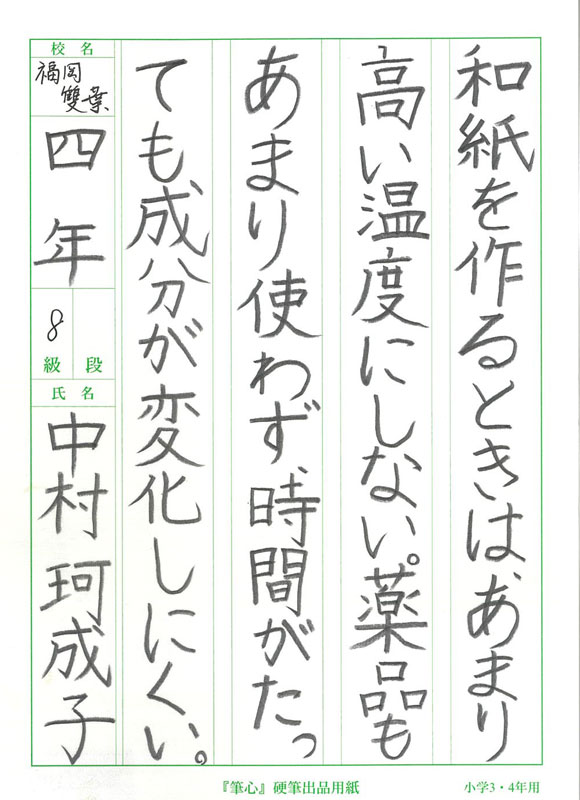 和紙を作るときは、あまり
高い温度にしない。薬品も
あまり使わず、時間がたっ
ても、成分が変化しにくい。
校名
福岡
雙葉
四年
8
級段
氏名
中村珂成子
『筆心』硬筆出品用紙
小学3・4年用